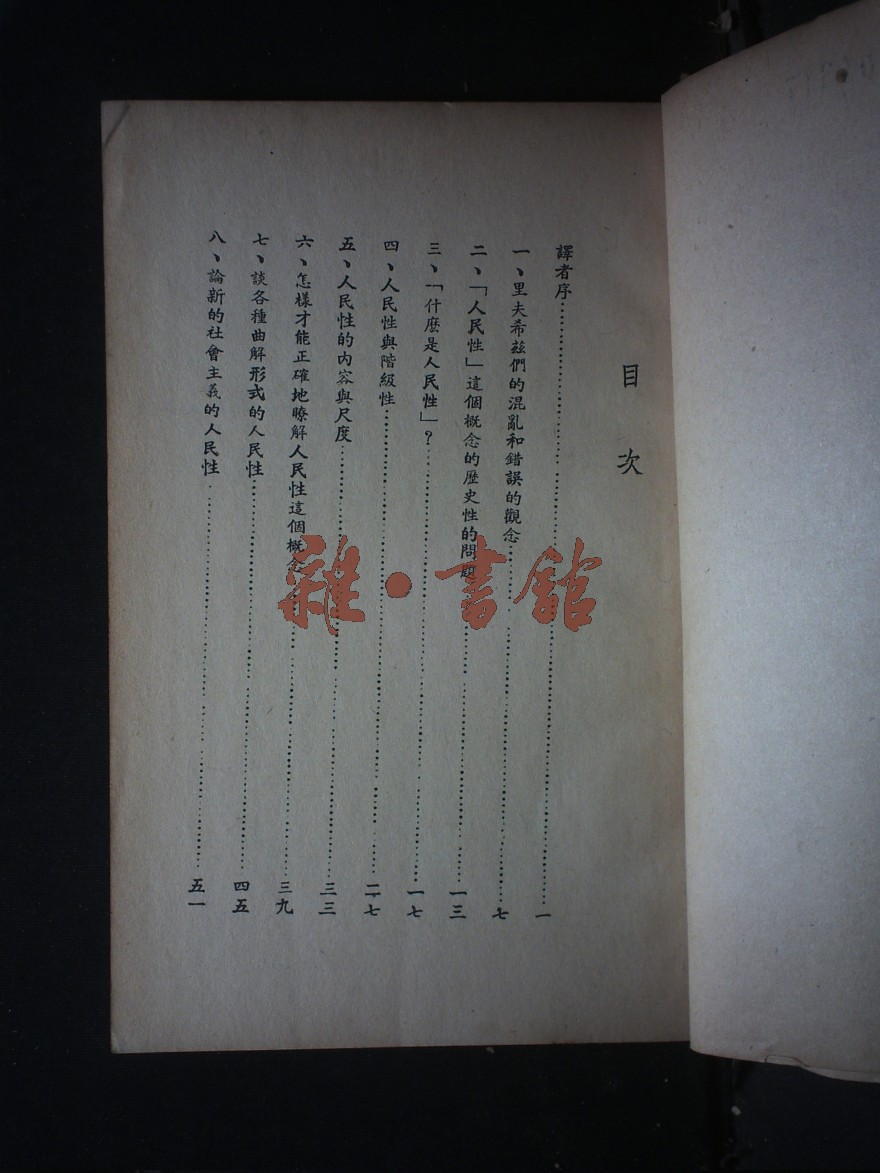 目次
譯者序……一
一、里夫希茲們的混亂和錯誤的觀念……七
二、「人民性」這個概念的歷史性的問題……一三
三、「什麽是人民性」？……一七
四、人民性與階級性……二七
五、人民性的內容與尺度……三三
六、怎樣才能正確地瞭解人民性這個概念……三九
七、談各種曲解形式的人民性……四五
八、論新的社會主義的人民性……五一
雜·書館